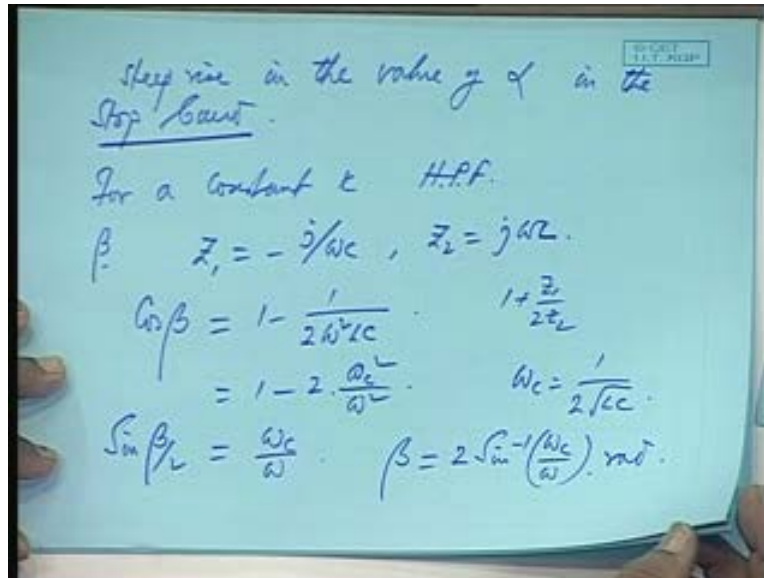 © CET
I.I.T. KGP
steep rise in the value of α in the
Stop band.
For a constant k H.P.F.
β Z₁ = - j/ωC , Z₂ = jωL.
Cos β = 1 - 1/(2ω²LC) . 1 + Z₁/(2Z₂)
= 1 - 2 . ωc²/ω² . ωc = 1/(2√LC) .
Sin β/2 = ωc/ω . β = 2 Sin⁻¹(ωc/ω) . rad .